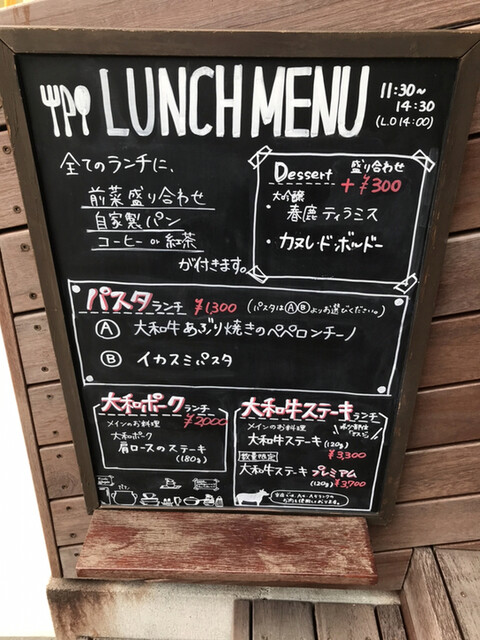 LUNCH MENU
11:30~
14:30
(L.O 14:00)
全てのランチに、
前菜盛り合わせ
自家製パン
コーヒー or 紅茶
が付きます。
Dessert 盛り合わせ
+¥300
大吟醸
・春鹿ティラミス
・カヌレ・ド・ボルドー
パスタランチ ¥1300 (パスタはⒶⒷよりお選びください。)
Ⓐ 大和牛あぶり焼きのペペロンチーノ
Ⓑ イカスミパスタ
大和ポークランチ
メインのお料理 ¥2000
大和ポーク
肩ロースのステーキ
(180g)
大和牛ステーキランチ
メインのお料理
大和牛ステーキ (120g)
¥3,300
数量限定
大和牛ステーキ プレミアム
(120g) ¥3,700